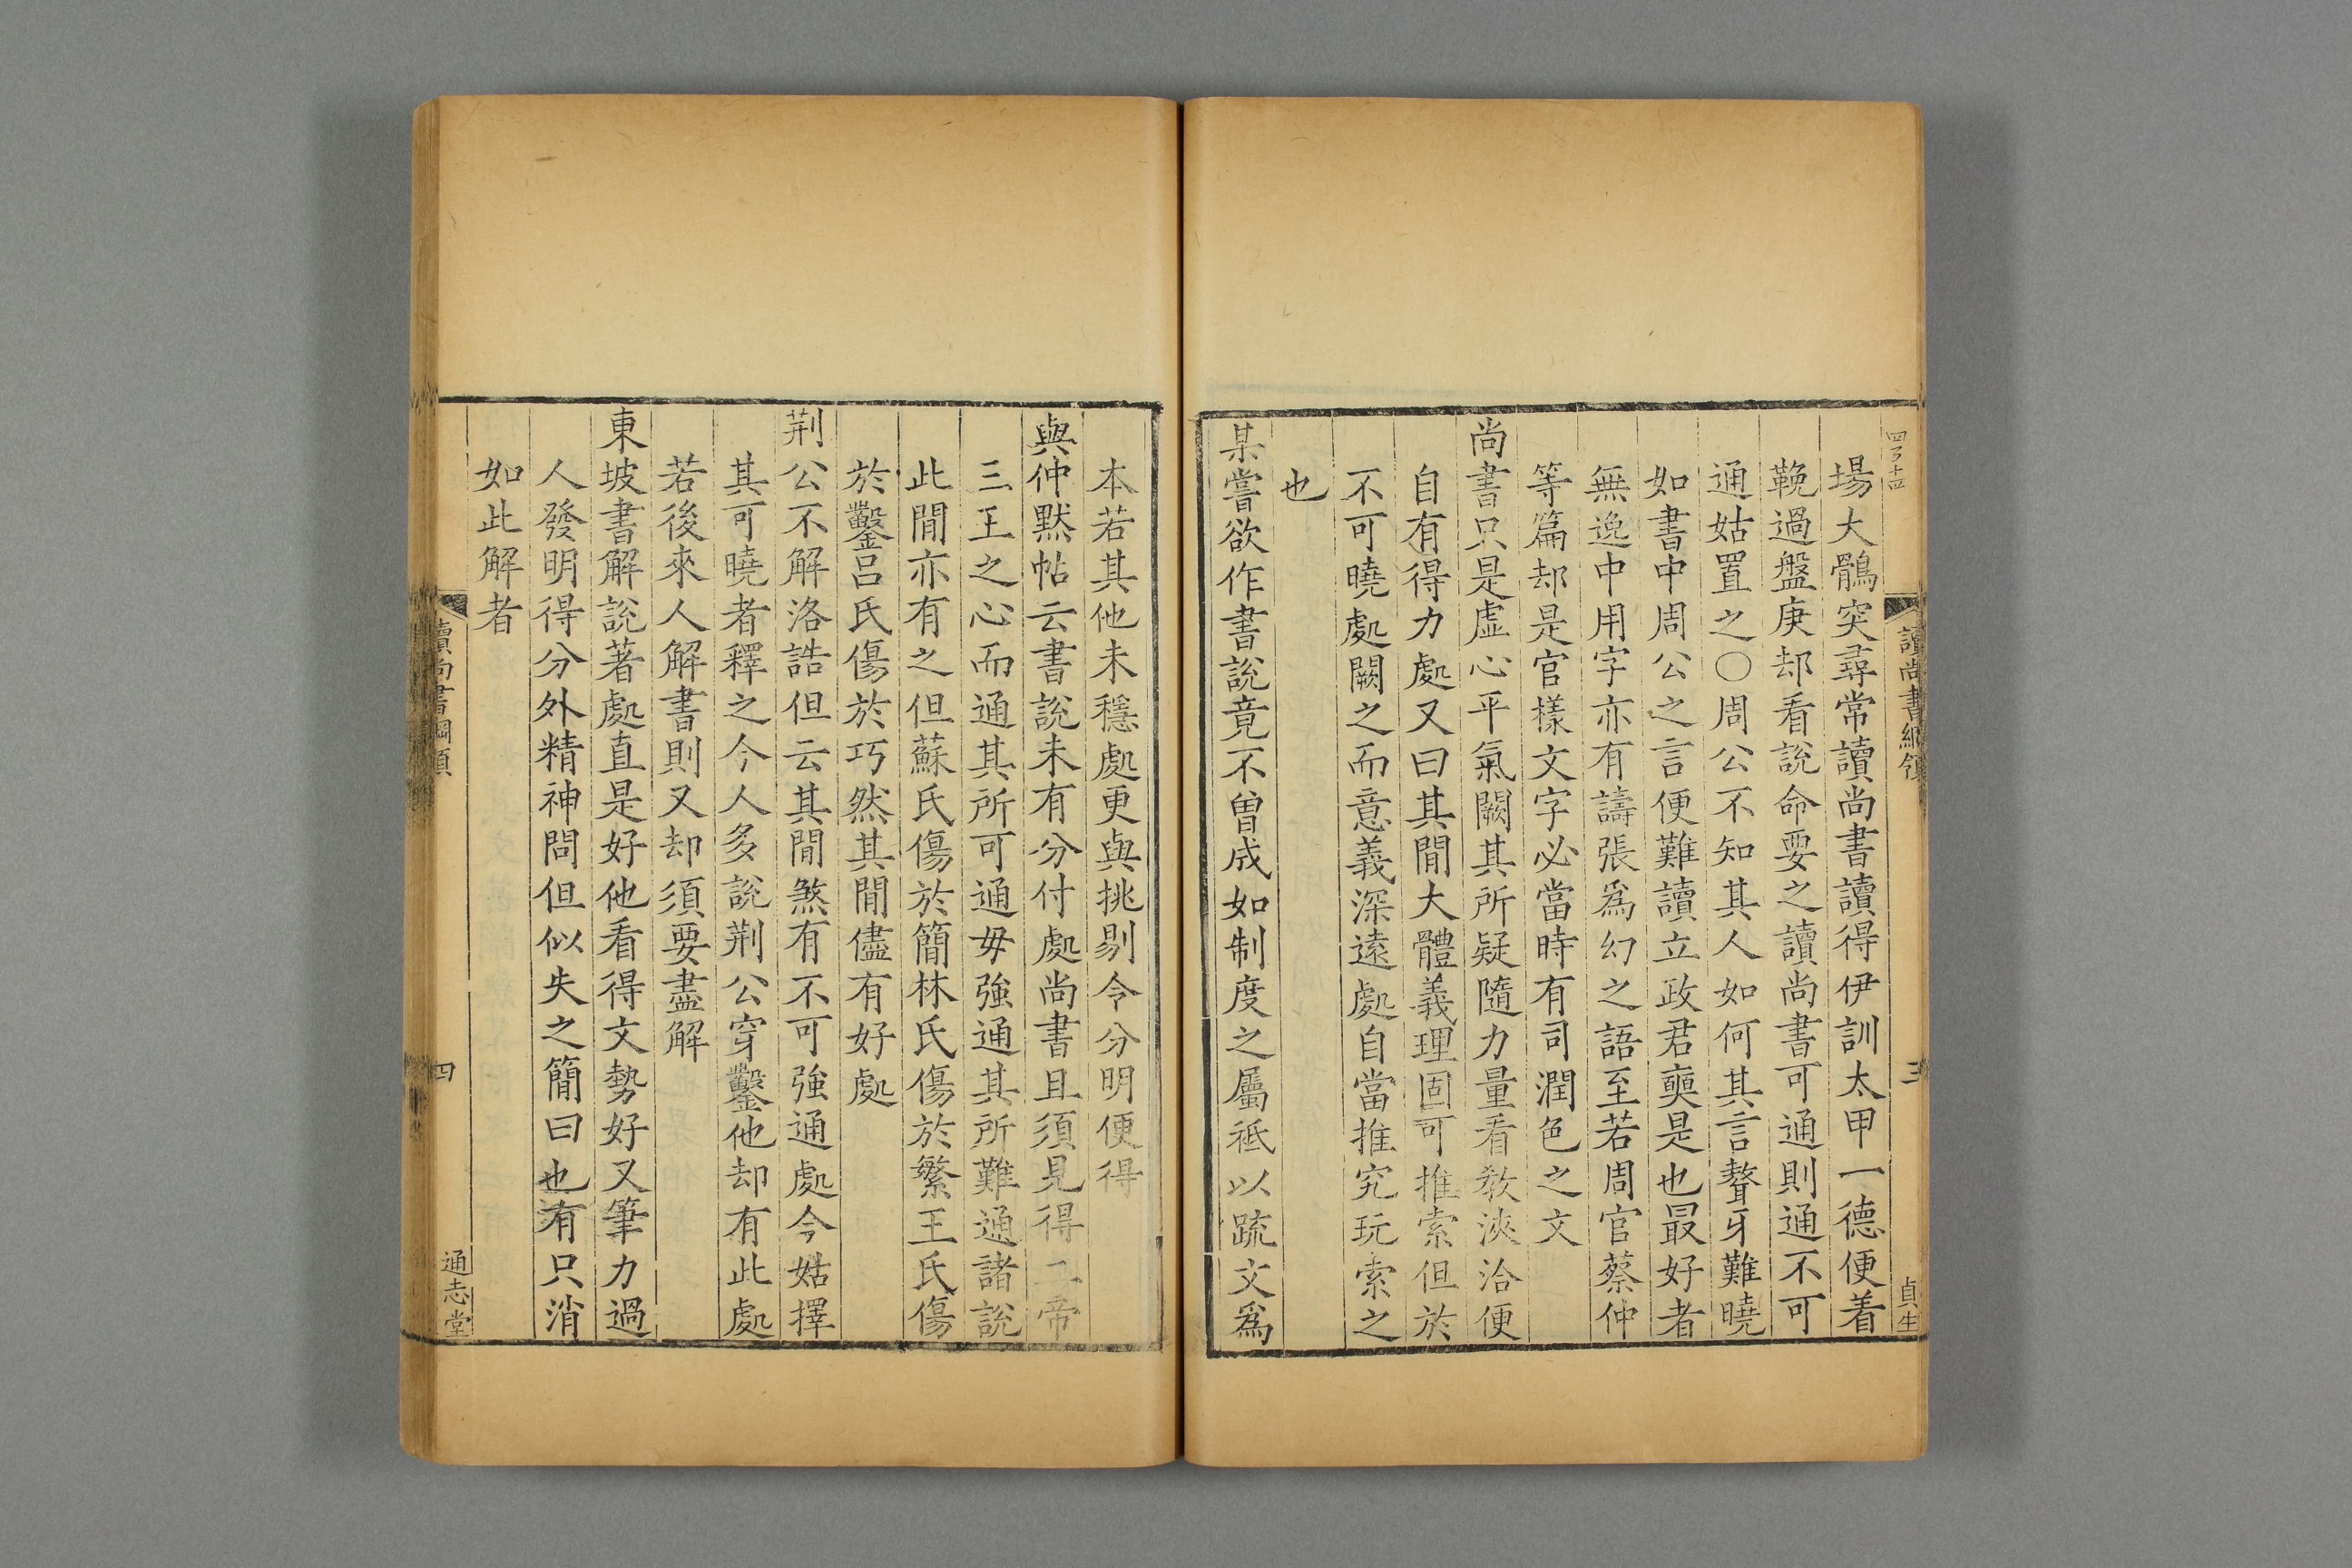 四百十四
讀尚書綱領
三
貞生
場大鶻突尋常讀尚書讀得伊訓太甲一德便着
鞔過盤庚却看說命要之讀尚書可通則通不可
通姑置之〇周公不知其人如何其言聱牙難曉
如書中周公之言便難讀立政君奭是也最好者
無逸中用字亦有譸張爲幻之語至若周官蔡仲
等篇却是官樣文字必當時有司潤色之文
尚書只是虛心平氣闕其所疑隨力量看教浹洽便
自有得力處又曰其閒大體義理固可推索但於
不可曉處闕之而意義深遠處自當推究玩索之
也
某嘗欲作書說竟不曾成如制度之屬祗以疏文爲
本若其他未穩處更與挑剔令分明便得
與仲默帖云書說未有分付處尚書且須見得二帝
三王之心而通其所可通毋強通其所難通諸說
此閒亦有之但蘇氏傷於簡林氏傷於繁王氏傷
於鑿呂氏傷於巧然其閒儘有好處
荆公不解洛誥但云其閒煞有不可強通處今姑擇
其可曉者釋之今人多說荆公穿鑿他却有此處
若後來人解書則又却須要盡解
東坡書解說著處直是好他看得文勢好又筆力過
人發明得分外精神問但似失之簡曰也有只消
如此解者
讀尚書綱領
四
通志堂